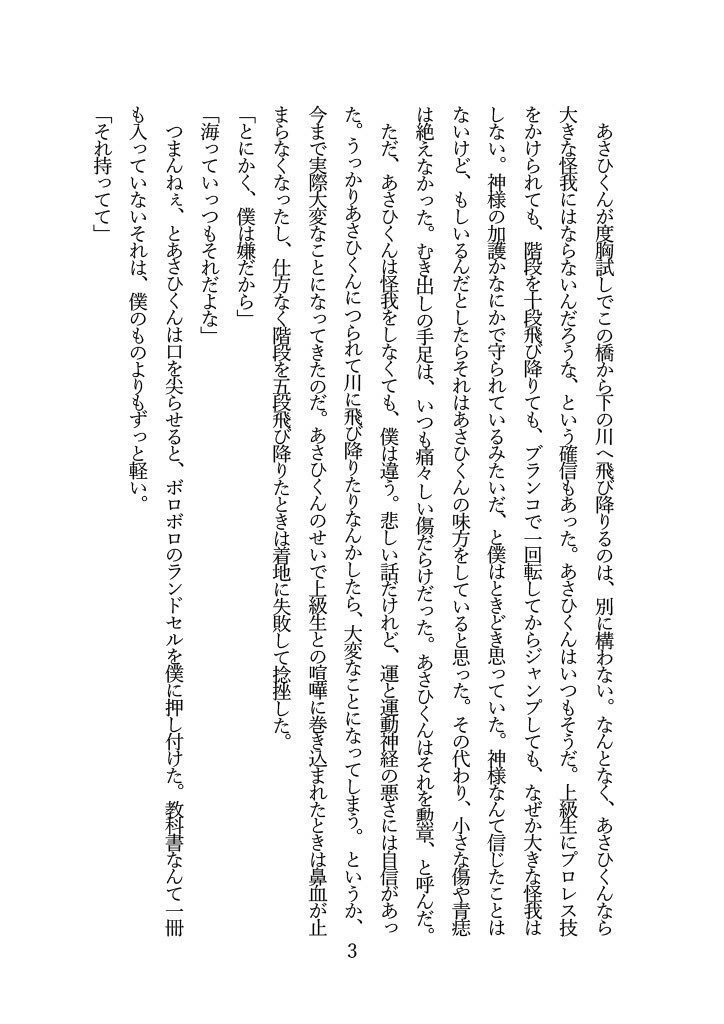 あさひくんが度胸試しでこの橋から下の川へ飛び降りるのは、別に構わない。なんとなく、あさひくんなら
大きな怪我にはならないんだろうな、という確信もあった。あさひくんはいつもそうだ。上級生にプロレス技
をかけられても、階段を十段飛び降りても、ブランコで一回転してからジャンプしても、なぜか大きな怪我は
しない。神様の加護かなにかで守られているみたいだ、と僕はときどき思っていた。神様なんて信じたことは
ないけど、もしいるんだとしたらそれはあさひくんの味方をしていると思った。その代わり、小さな傷や青痣
は絶えなかった。むき出しの手足は、いつも痛々しい傷だらけだった。あさひくんはそれを勲章、と呼んだ。
ただ、あさひくんは怪我をしなくても、僕は違う。悲しい話だけれど、運と運動神経の悪さには自信があっ
た。うっかりあさひくんにつられて川に飛び降りたりなんかしたら、大変なことになってしまう。というか、
今まで実際大変なことになってきたのだ。あさひくんのせいで上級生との喧嘩に巻き込まれたときは鼻血が止
まらなくなったし、仕方なく階段を五段飛び降りたときは着地に失敗して捻挫した。
「とにかく、僕は嫌だから」
「海っていっつもそれだよな」
つまんねぇ、とあさひくんは口を尖らせると、ボロボロのランドセルを僕に押し付けた。教科書なんて一冊
も入っていないそれは、僕のものよりもずっと軽い。
「それ持ってて」
3